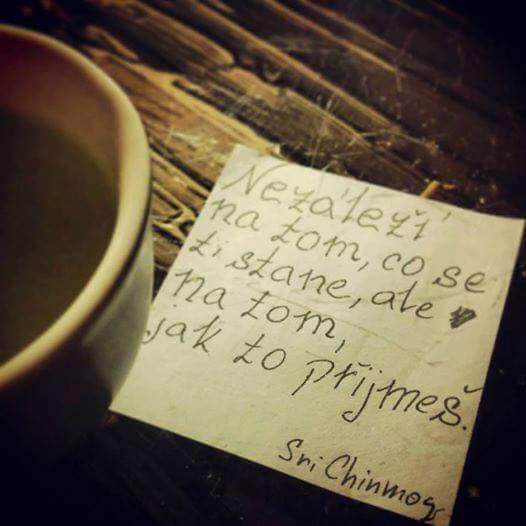 Nezáleží
na tom, co se
ti stane, ale
na tom,
jak to přijmeš.
Sri Chinmoy